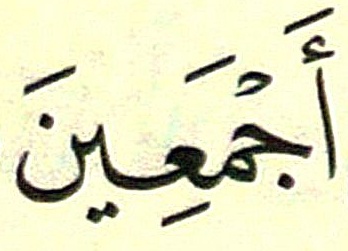 أَجْمَعِينَ